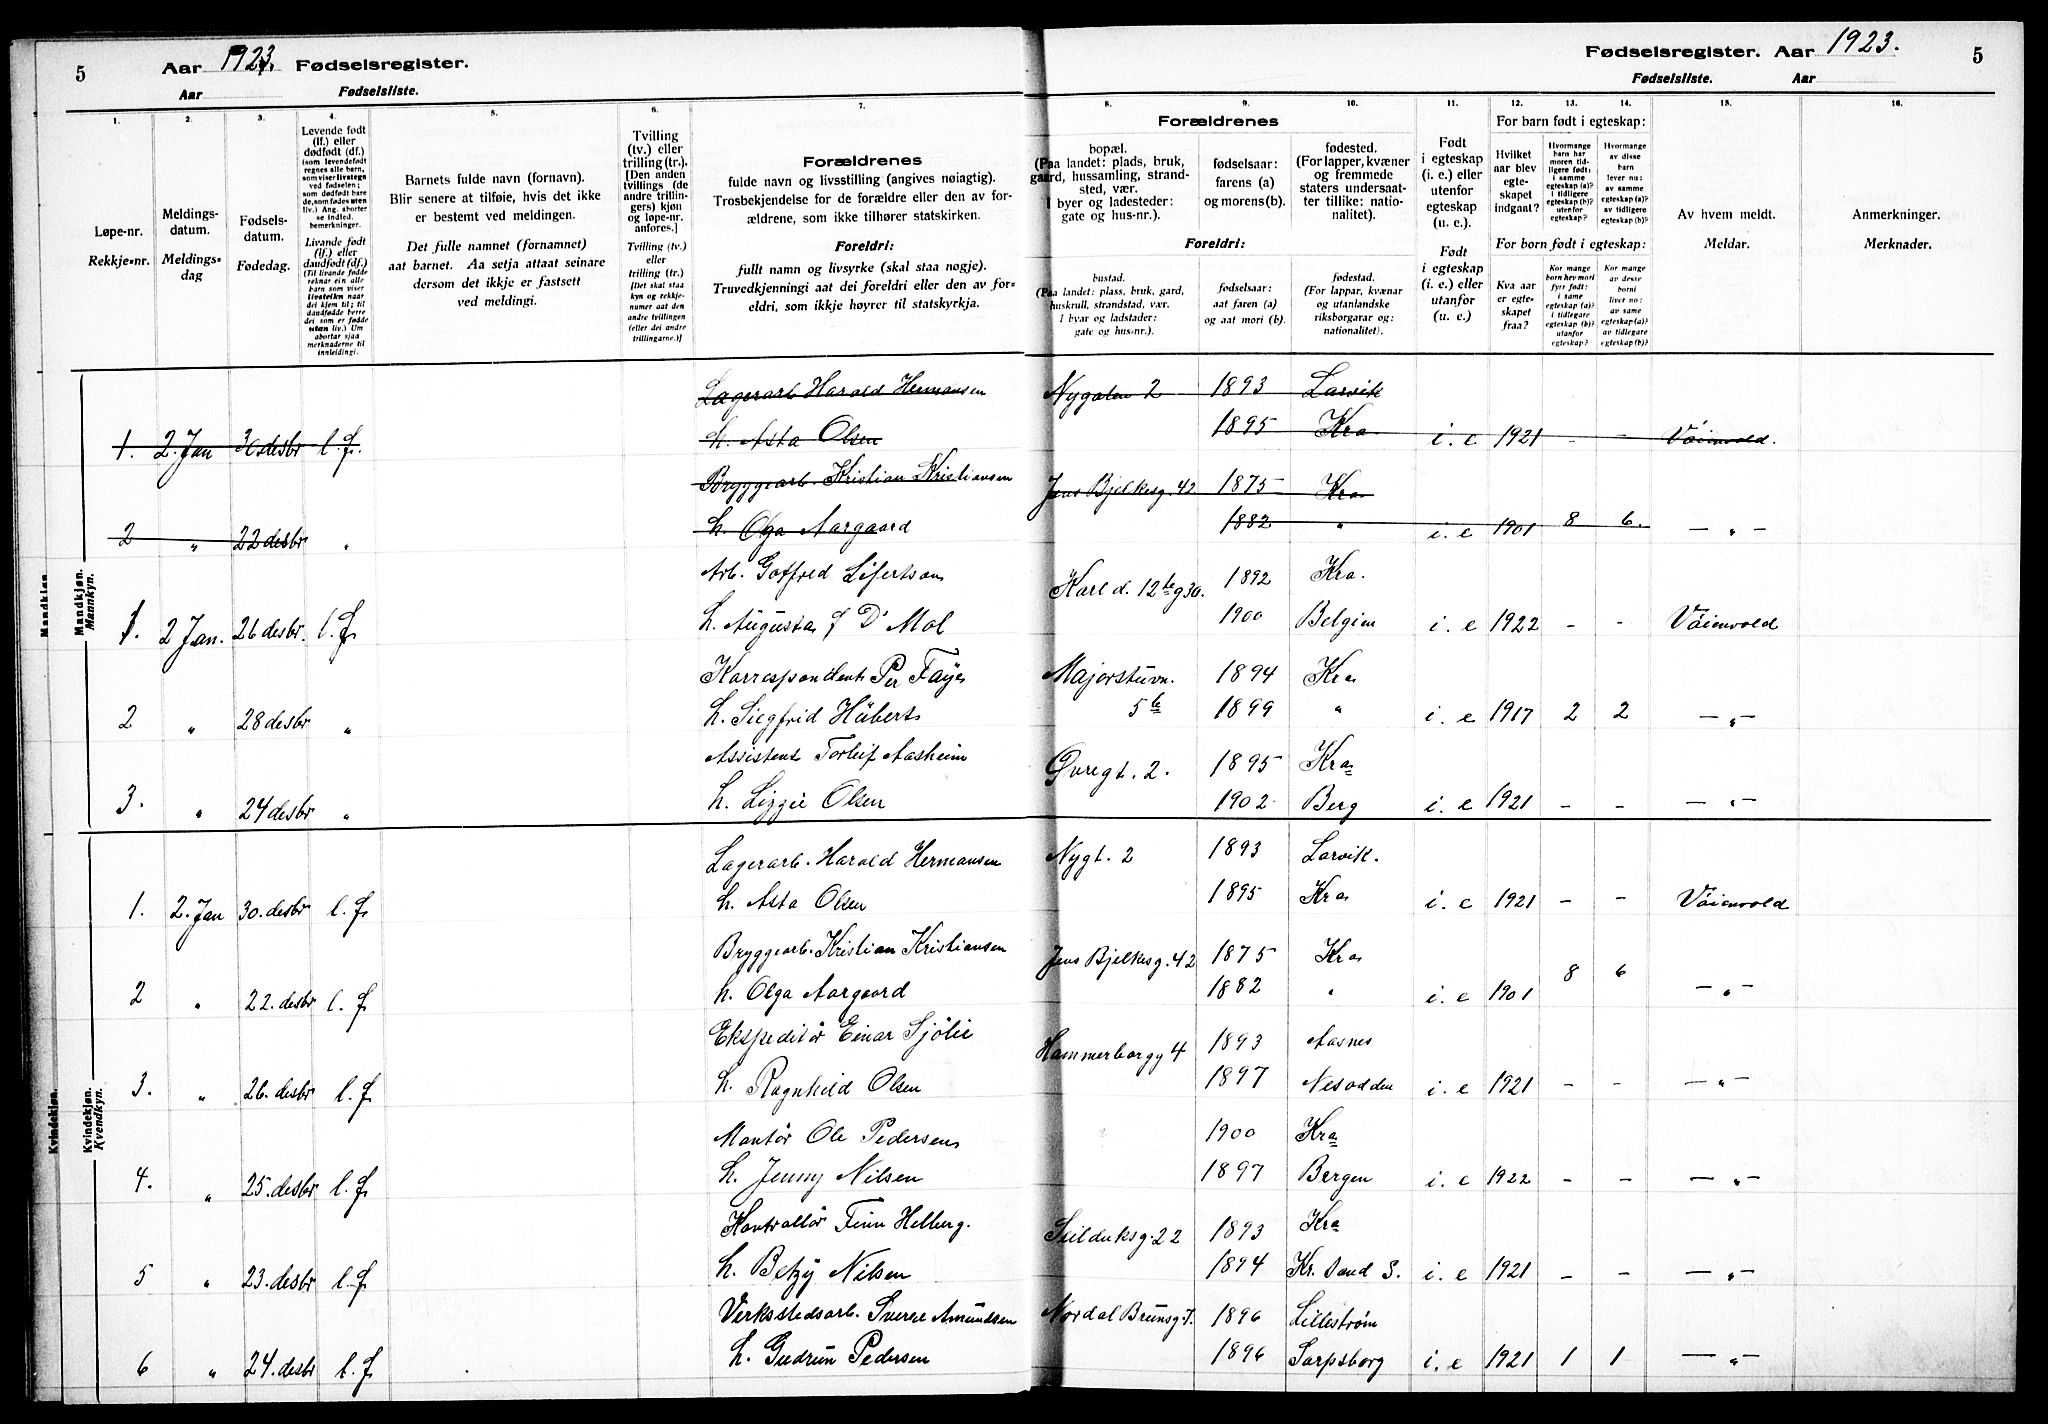 5 Aar 1923. Fødselsregister.
Aar Fødselsliste.
Fødselsregister. Aar 1923. 5
Fødselsliste. Aar
1. 2. 3. 4. 5. 6. 7. 8. 9. 10. 11. 12. 13. 14. 15. 16.
Løpe-nr.
Rekkje-nr.
Meldings-
datum.
Meldings-
dag
Fødsels-
datum.
Fødedag.
Levende født
(lf.) eller
dødfødt (df.)
(som levendefødt
regnes alle barn,
som viser livstegn
ved fødselen;
som dødfødt bare
de, som fødes uten
liv.) Ang. aborter
se indled.
bemerkninger.
Livande født
(lf.) eller
daudfødt (df.)
(Til livande fødde
reknar ein alle
barn som viser
livsteikn naar
dei kjem til; til
daudfødde berre
dei som er fødde
utan liv.) Um
abortar sjaa
merknaderne til
innleidingi.
Barnets fulde navn (fornavn).
Blir senere at tilføie, hvis det ikke
er bestemt ved meldingen.
Det fulle namnet (fornamnet)
aat barnet. Aa setja attaat seinare
dersom det ikkje er fastsett
ved meldingi.
Tvilling
(tv.) eller
trilling (tr.).
[Den anden
tvillings (de
andre trillin-
gers) kjøn
og løpe-nr.
anføres.]
Tvilling (tv.)
eller
trilling (tr.)
[Det skal staa
kyn og rekkje-
numer aat den
andre tvillingen
(eller dei andre
trillingarne.)]
Forældrenes
fulde navn og livsstilling (angives nøiagtig).
Trosbekjendelse for de forældre eller den av for-
ældrene, som ikke tilhører statskirken.
Foreldri:
fullt namn og livsyrke (skal staa nøgje).
Truvedkjenningi aat dei foreldri eller den av for-
eldri, som ikkje høyrer til statskyrkja.
Forældrenes
bopæl.
(Paa landet: plads, bruk,
gaard, hussamling, strand-
sted, vær.
I byer og ladesteder:
gate og hus-nr.).
fødselsaar:
farens (a)
og morens (b).
fødested.
(For lapper, kvæner
og fremmede
staters undersaat-
ter tillike: natio-
nalitet).
Foreldri:
bustad.
(Paa landet: plass, bruk, gard,
huskrull, strandstad, vær.
I byar og ladstader:
gate og hus-nr.).
fødselsaar:
aat faren (a)
og aat mori (b).
fødestad.
(For lappar, kvænar
og utanlandske
riksborgarar og:
nationalitet).
Født
i egteskap
(i. e.) eller
utenfor
egteskap
(u. e.).
Født
i egteskap
(i. e.) eller
utanfor
(u. e.)
For barn født i egteskap:
Hvilket
aar blev
egte-
skapet
indgaat?
Hvormange
barn har
moren tid-
ligere født:
i samme
egteskap (a)?
i tidligere
egteskap (b)?
utenfor
egteskap?
Hvormange
av disse
barn
lever nu:
av samme
egteskap (a)?
av tidligere
egteskap (b)?
For born født i egteskap:
Kva aar
er egte-
skapet
fraa?
Kor mange
born hev mori
fyrr født:
i same
egteskap (a)?
i tidlegare
egteskap (b)?
utanfor
egteskap?
Kor mange
av desse
borni
liver no:
av same
egteskap (a)?
av tidlegare
egteskap (b)?
Av hvem meldt.
Meldar.
Anmerkninger.
Merknader.
Mandkjøn.
Mandkjøn.
Mannkyn.
Lagerarb Harald Hermansen Nygaten 2 1893 Larvik
1. 2. Jan 30 desbr l. f. h. Asta Olsen 1895 Kra i. e 1921 - - Vöienvold.
Bryggearb. Kristian Kristiansen Jens Bjelkesg. 42 1875 Kra
2 " 22 desbr " h. Olga Aargaard 1882 " i. e 1901 8 6. — " —
Arb. Gotfred Lifertsen Karl d. 12te g 30. 1892 Kra.
1. 2 Jan. 26 desbr. l. f. h. Augusta f D' Mol 1900 Belgien i. e 1922 - - Vöienvold
Korrespondent Per Faye Majorstuvn. 1894 Kra
2 " 28 desbr " h. Siegfrid Hüberts 5 b 1899 " i. e 1917 2 2 — " —
Assistent Torleif Aasheim Øvregt. 2. 1895 Kra
3. " 24 desbr " h. Lizzie Olsen 1902 Berg i. e 1921 - - — " —
Kvindekjøn.
Kvindekjøn.
Kvendkyn.
Lagerarb. Harald Hermansen Nygt. 2 1893 Larvik.
1. 2. Jan 30. desbr l. f. h. Asta Olsen 1895 Kra i. e 1921 - - Vöienvold
Bryggearb. Kristian Kristiansen Jens Bjelkesg. 42 1875 Kra
2 " 22. desbr l. f. h. Olga Aargaard 1882 " i. e 1901 8 6 — " —
Ekspeditör Einar Sjölie Hammerborgg 4 1893 Aasnes
3. " 26. desbr l. f. h. Ragnhild Olsen 1897 Nesodden i. e 1921 - - — " —
Montör Ole Pedersen 1900 Kra
4. " 25. desbr l. f. h. Jenny Nilsen 1897 Bergen i. e 1922 - - — " —
Kontrollör Finn Helberg. Seilduksg. 22 1893 Kra
5 " 23. desbr l. f. h. Betzy Nilsen 1894 Kr. Sand S. i. e 1921 - - — " —
Verkstedsarb. Sverre Amundsen Nordal Brunsg 7. 1896 Lillestrøm
6 " 24. desbr l. f. h. Gudrun Pedersen 1896 Sarpsborg i. e 1921 1 1 — " —